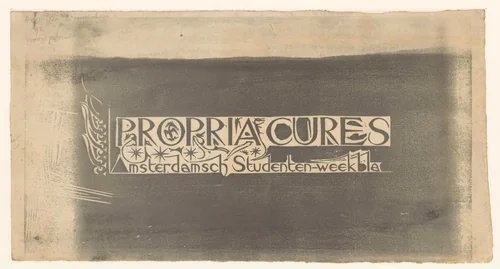 PROPRIA CURES
Amsterdamsch Studenten-weekbla